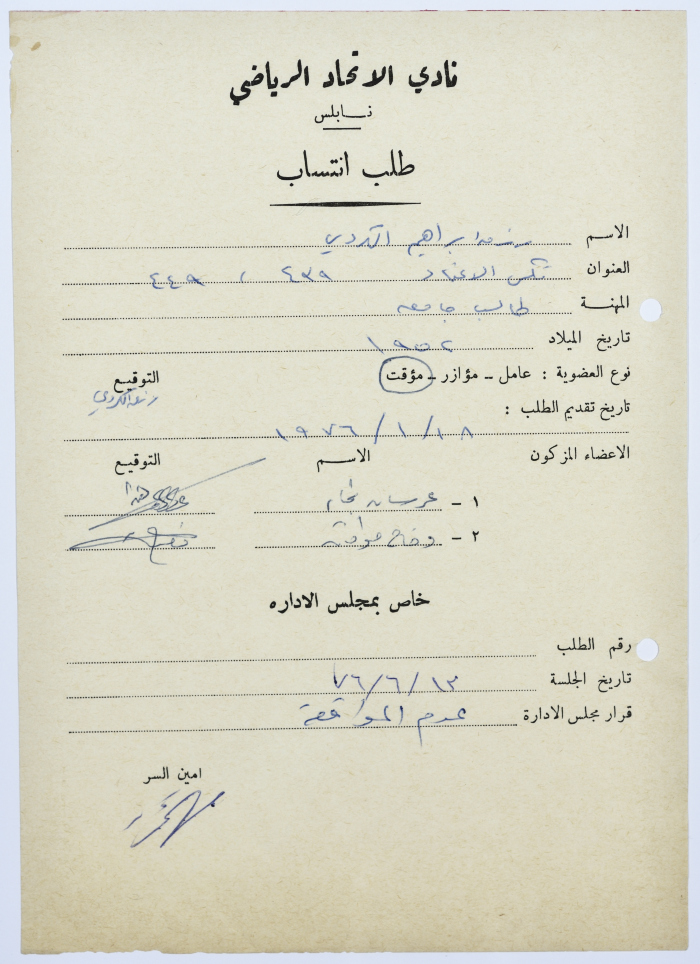 نادي الاتحاد الرياضي
نابلس
طلب انتساب
الاسم ابراهيم الكردي
العنوان تكسي الاعتماد ٤٣٩ ، ٤٤٩
المهنة طالب جامعه
تاريخ الميلاد ١٩٥٢
نوع العضوية : عامل - مؤازر - مؤقت التوقيع
تاريخ تقديم الطلب :
١٩٧٦/١/١٨
الاعضاء المزكون الاسم التوقيع
١ - عرسان نجم
٢ - وضاح
خاص بمجلس الاداره
رقم الطلب
تاريخ الجلسة ٧٦/٦/١٣
قرار مجلس الادارة عدم الموافقة
امين السر